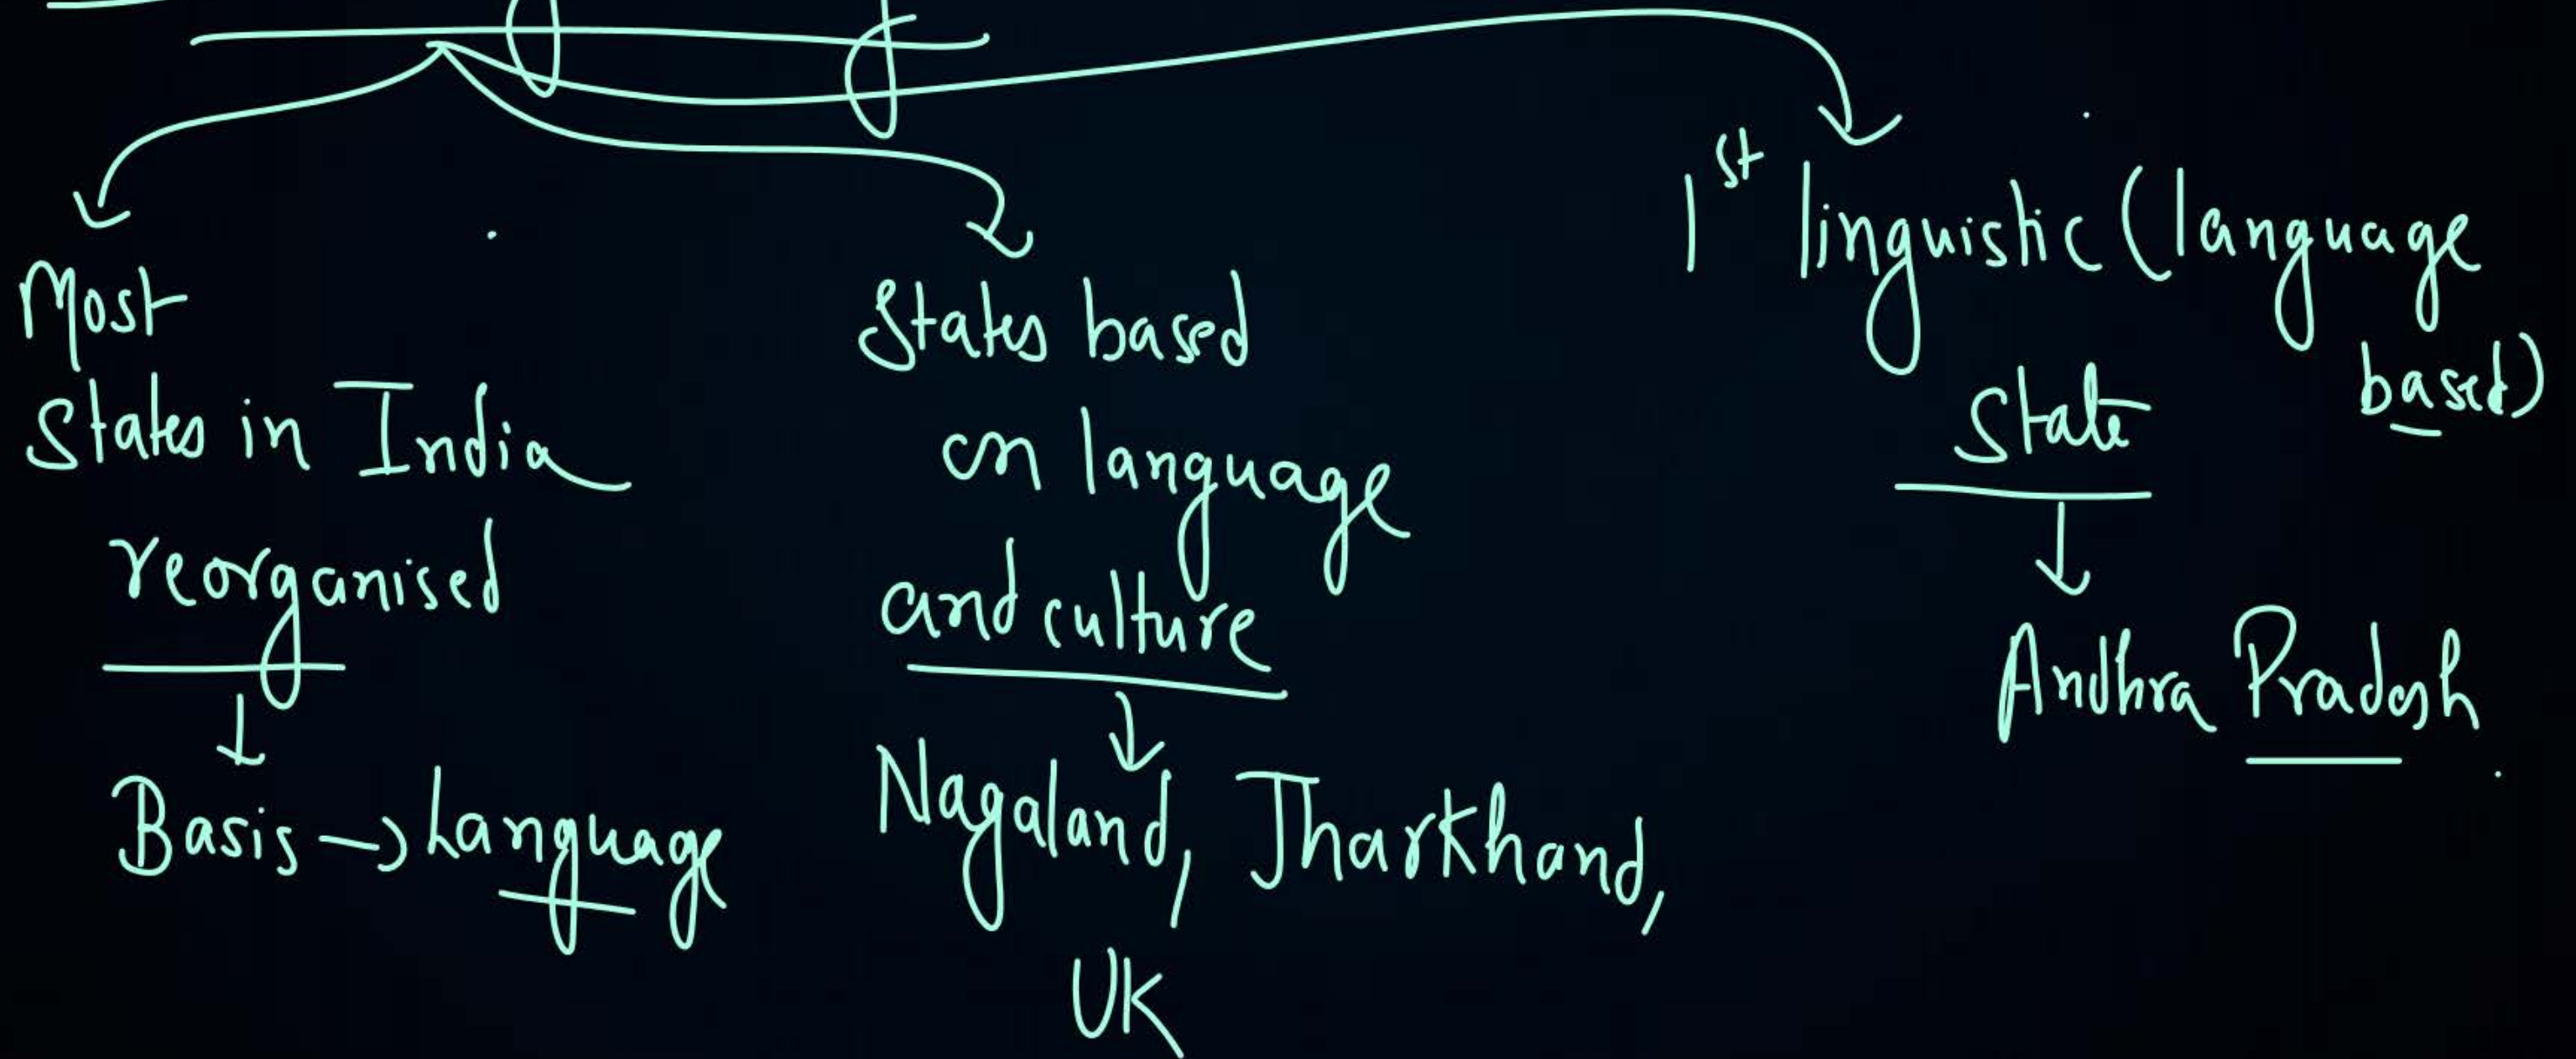 Most
States in India
reorganised
Basis → Language
States based
on language
and culture
Nagaland, Jharkhand,
UK
1st linguistic (language
based)
State
Andhra Pradesh